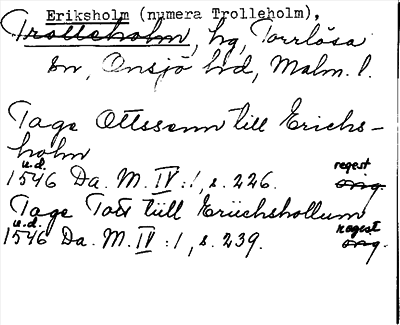 Eriksholm (numera Trolleholm),
Trolleholm, hg, Torrlösa
sn, Onsjö hd, Malm. l.
Tage Ottssenn till Erichs-
holm
u.d. regest
1546 Da. M. IV:1, s. 226. orig.
Tage Tott tiill Eriichshollum
u.d. regest
1546 Da. M. IV:1, s. 239. orig.